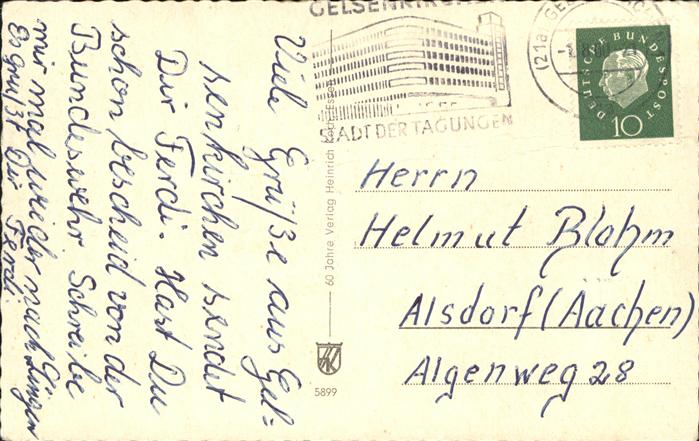 Viele Grüße aus Gel-
senkirchen sendet
Dir Ferdi. Hast Du
schon bescheid von der
Bundeswehr Schreibe
mir mal wieder nach Lingen
Es grüßt Dir Ferdi.
60 Jahre Verlag Heinrich Koch, Essen
5899
GELSENKIRCHEN
STADT DER TAGUNGEN
(21a)
DEUTSCHE BUNDESPOST
10
Herrn
Helmut Blohm
Alsdorf (Aachen)
Algenweg 28